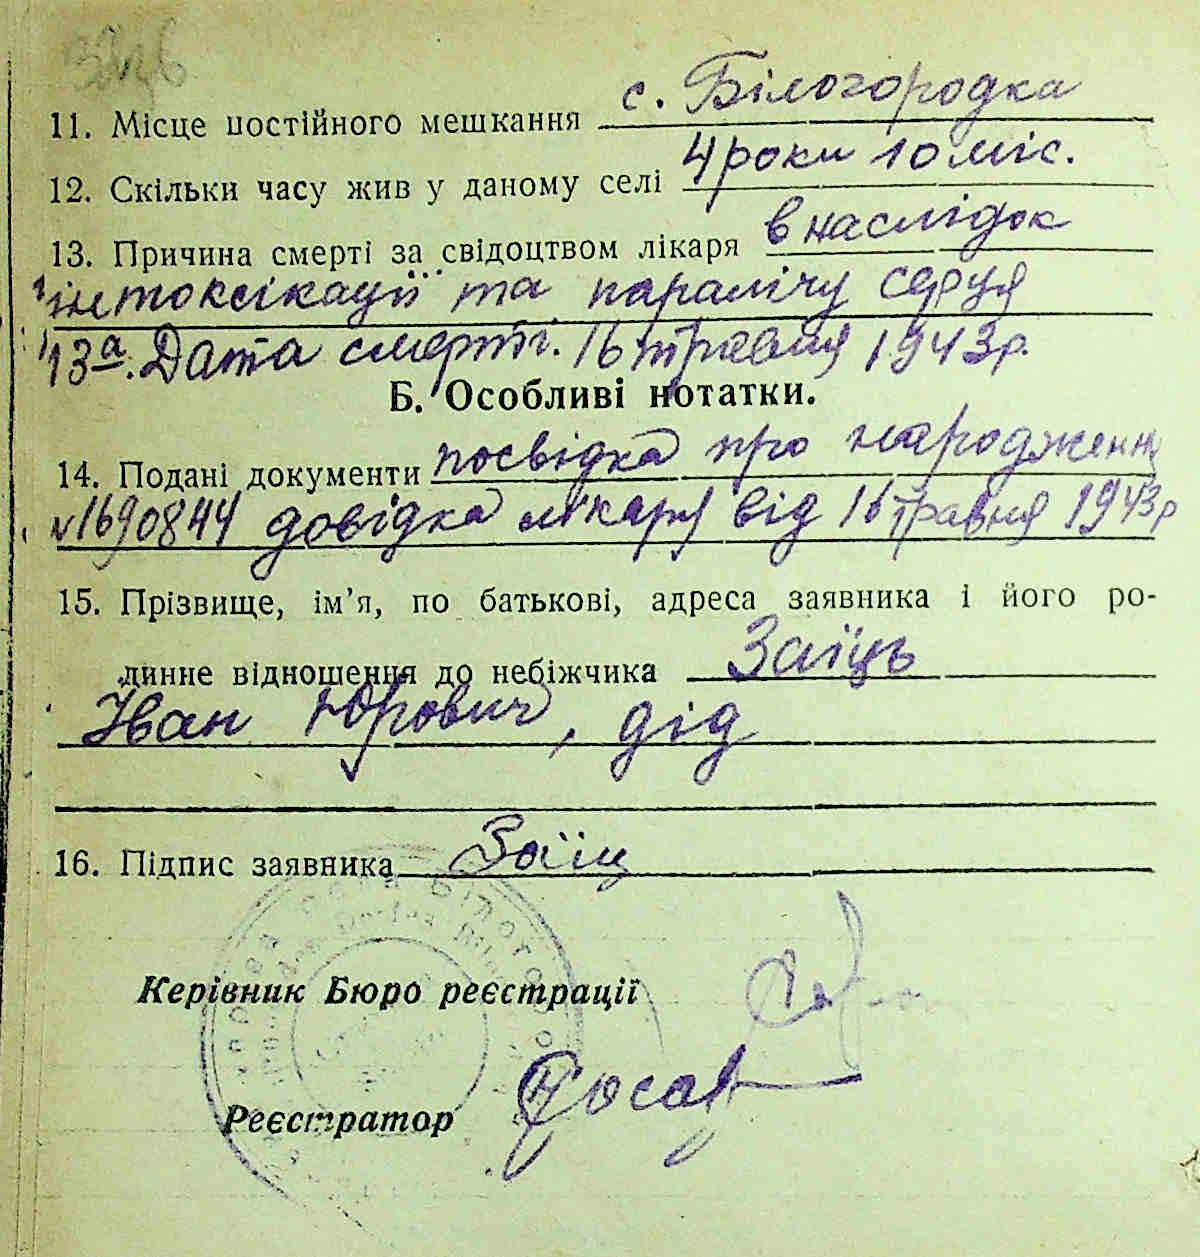 11. Місце постійного мешкання с. Білогородка
12. Скільки часу жив у даному селі 4 роки 10 міс.
13. Причина смерті за свідоцтвом лікаря внаслідок
інтоксікації та паралічу серця
13а. Дата смерті. 16 травня 1943 р.
Б. Особливі нотатки.
14. Подані документи посвідка про народження
№1690844 довідка лікаря від 16 травня 1943 р
15. Прізвище, ім’я, по батькові, адреса заявника і його ро-
динне відношення до небіжчика Заїць
Іван Юрович, дід
16. Підпис заявника Заїц
Керівник Бюро реєстрації
Реєстратор